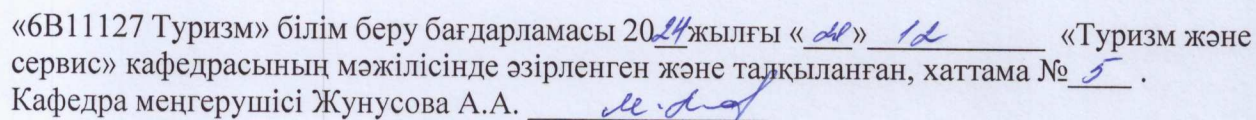 «6В11127 Туризм» білім беру бағдарламасы 2024жылғы «28» 12 «Туризм және
сервис» кафедрасының мәжілісінде әзірленген және талқыланған, хаттама № 5 .
Кафедра меңгерушісі Жунусова А.А.